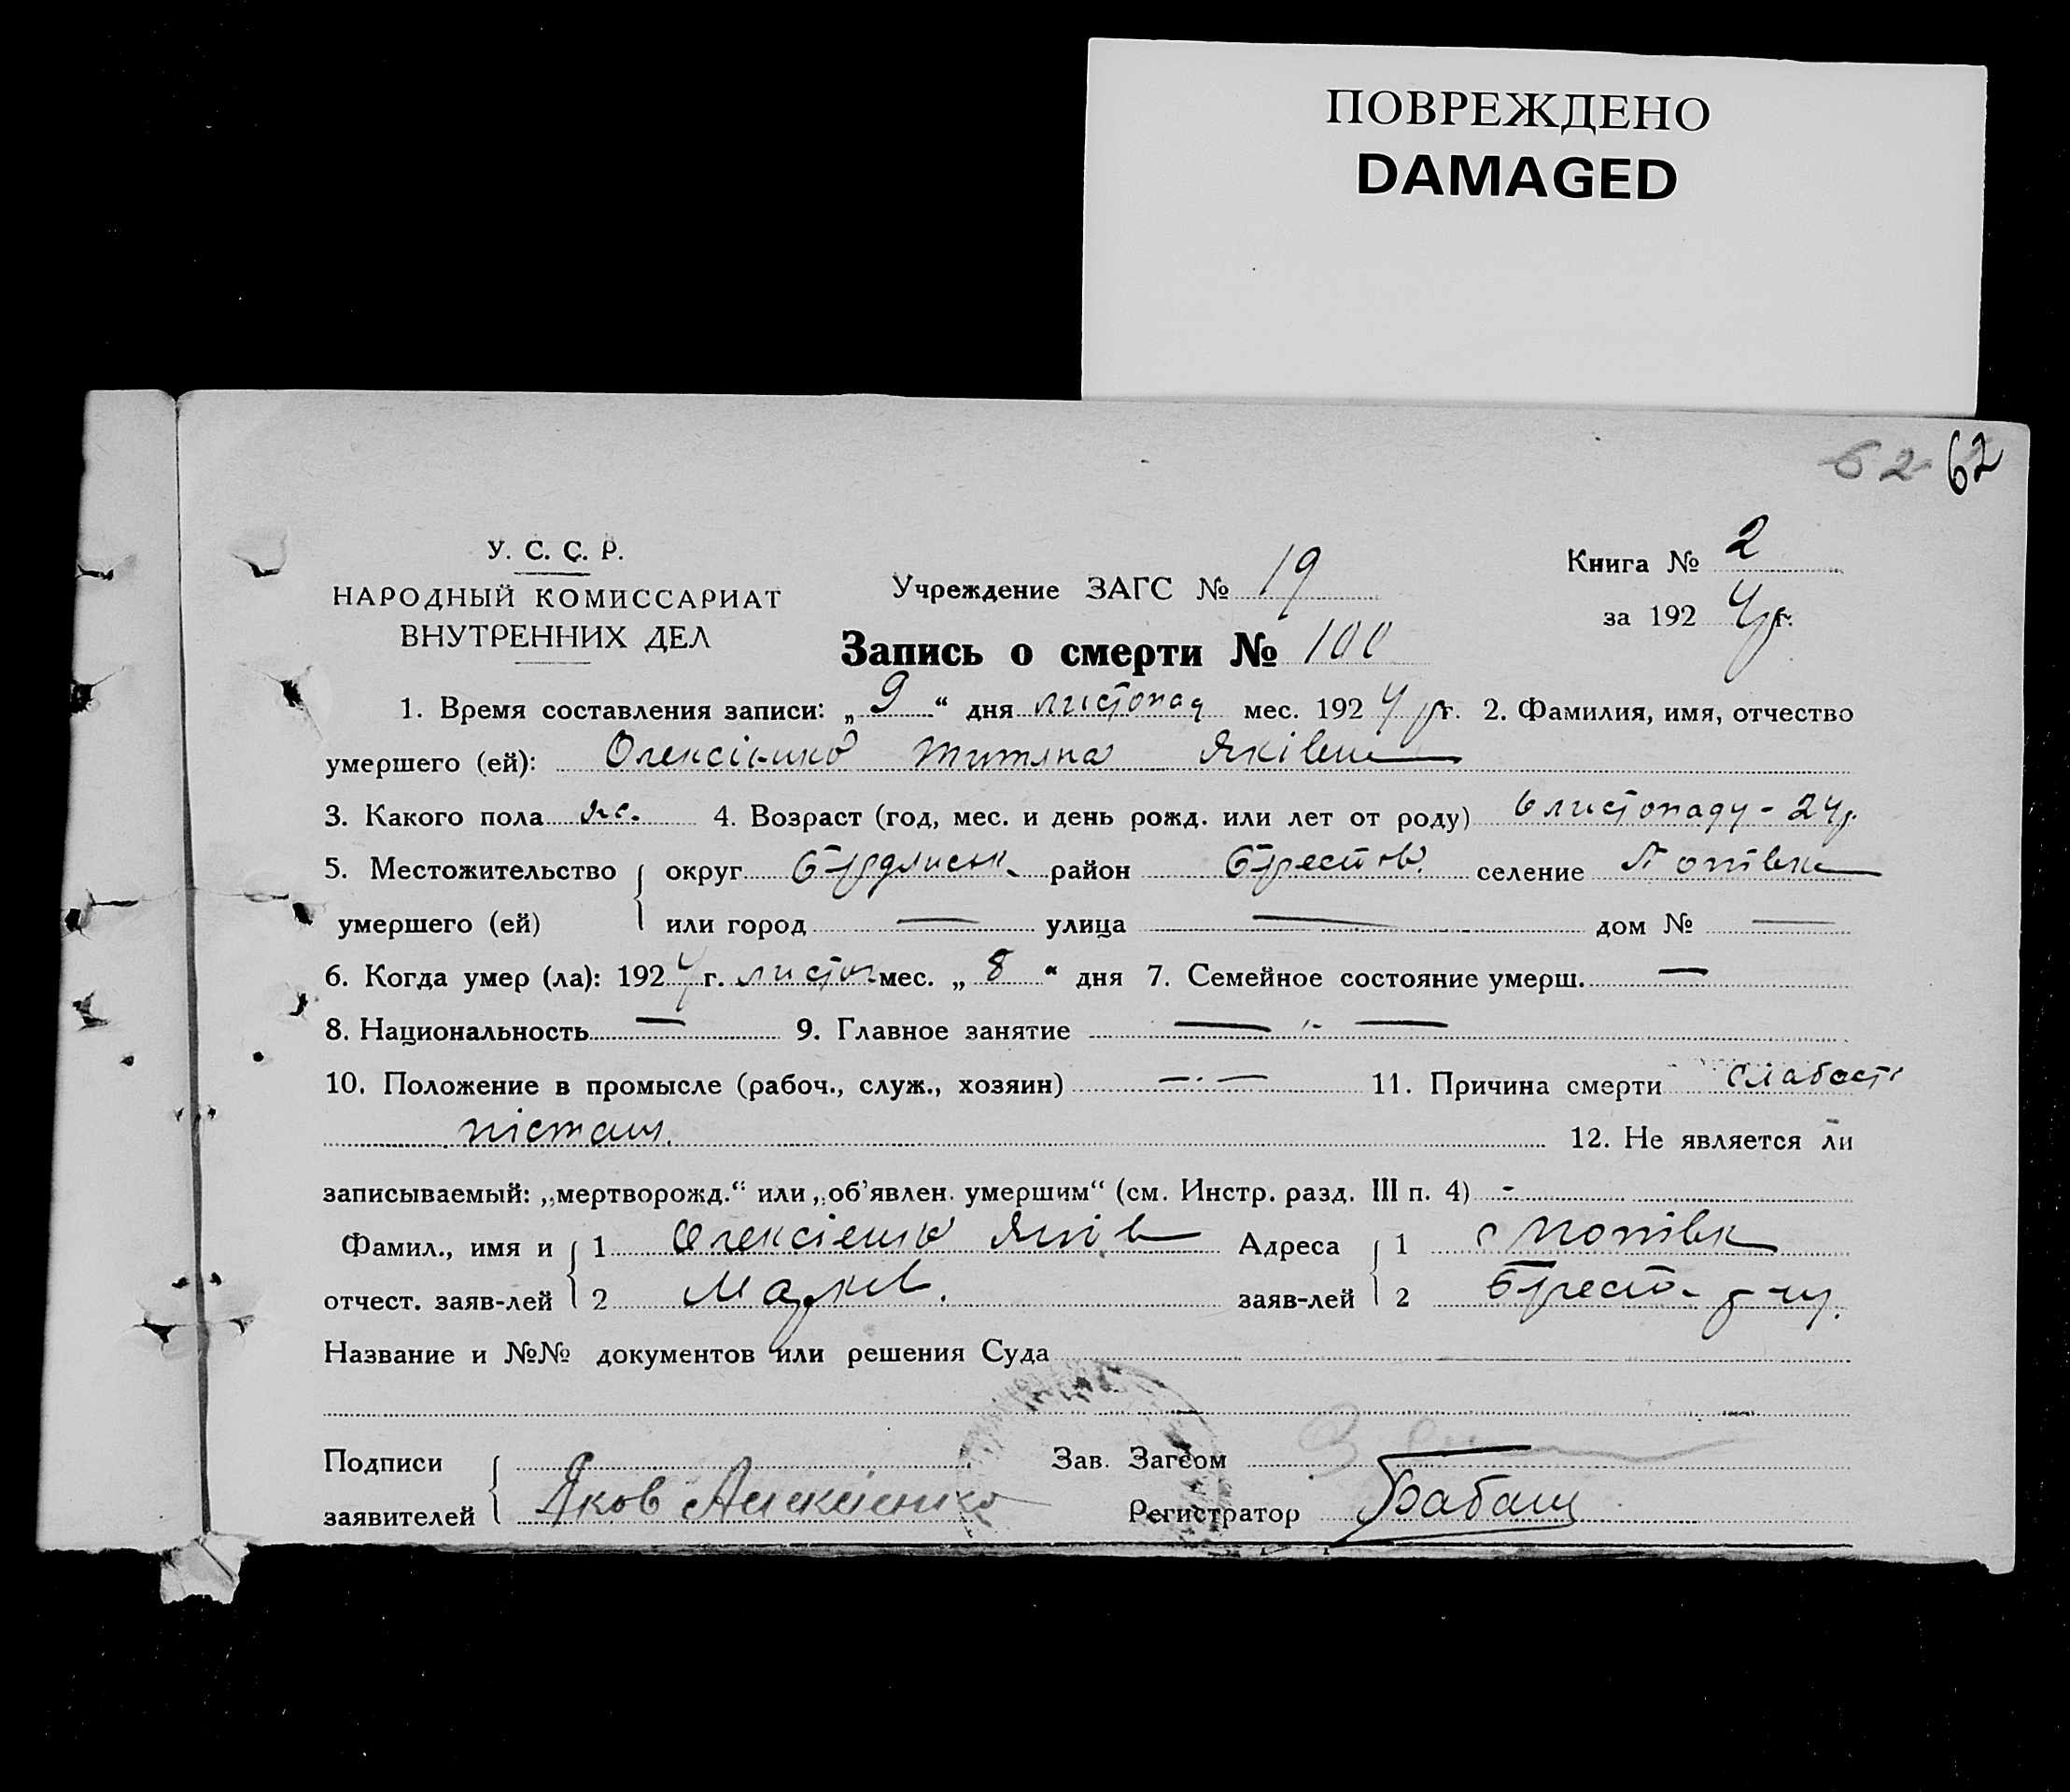 ПОВРЕЖДЕНО
DAMAGED
62 62
У. С. С. Р.
НАРОДНЫЙ КОМИССАРИАТ
ВНУТРЕННИХ ДЕЛ
Учреждение ЗАГС № 19
Книга № 2
за 1924 г.
Запись о смерти № 100
1. Время составления записи: „9“ дня листопад мес. 1924 г. 2. Фамилия, имя, отчество
умершего (ей): Олексієнко Яківна
3. Какого пола ж. 4. Возраст (год, мес. и день рожд. или лет от роду) 6 листопаду - 24 р.
5. Местожительство округ район селение
умершего (ей) или город — улица — дом № —
6. Когда умер (ла): 1924 г. листоп. мес. „8“ дня 7. Семейное состояние умерш. —
8. Национальность — 9. Главное занятие — „ —
10. Положение в промысле (рабоч., служ., хозяин) — . — 11. Причина смерти слабость
12. Не является ли
записываемый: „мертворожд.“ или „об'явлен. умершим“ (см. Инстр. разд. III п. 4) -
Фамил., имя и 1 Олексієнко Яків Адреса 1 с
отчест. заяв-лей 2 заяв-лей 2
Название и №№ документов или решения Суда
Подписи Зав. Загсом
заявителей Яков Алексіенко Регистратор Бабаш